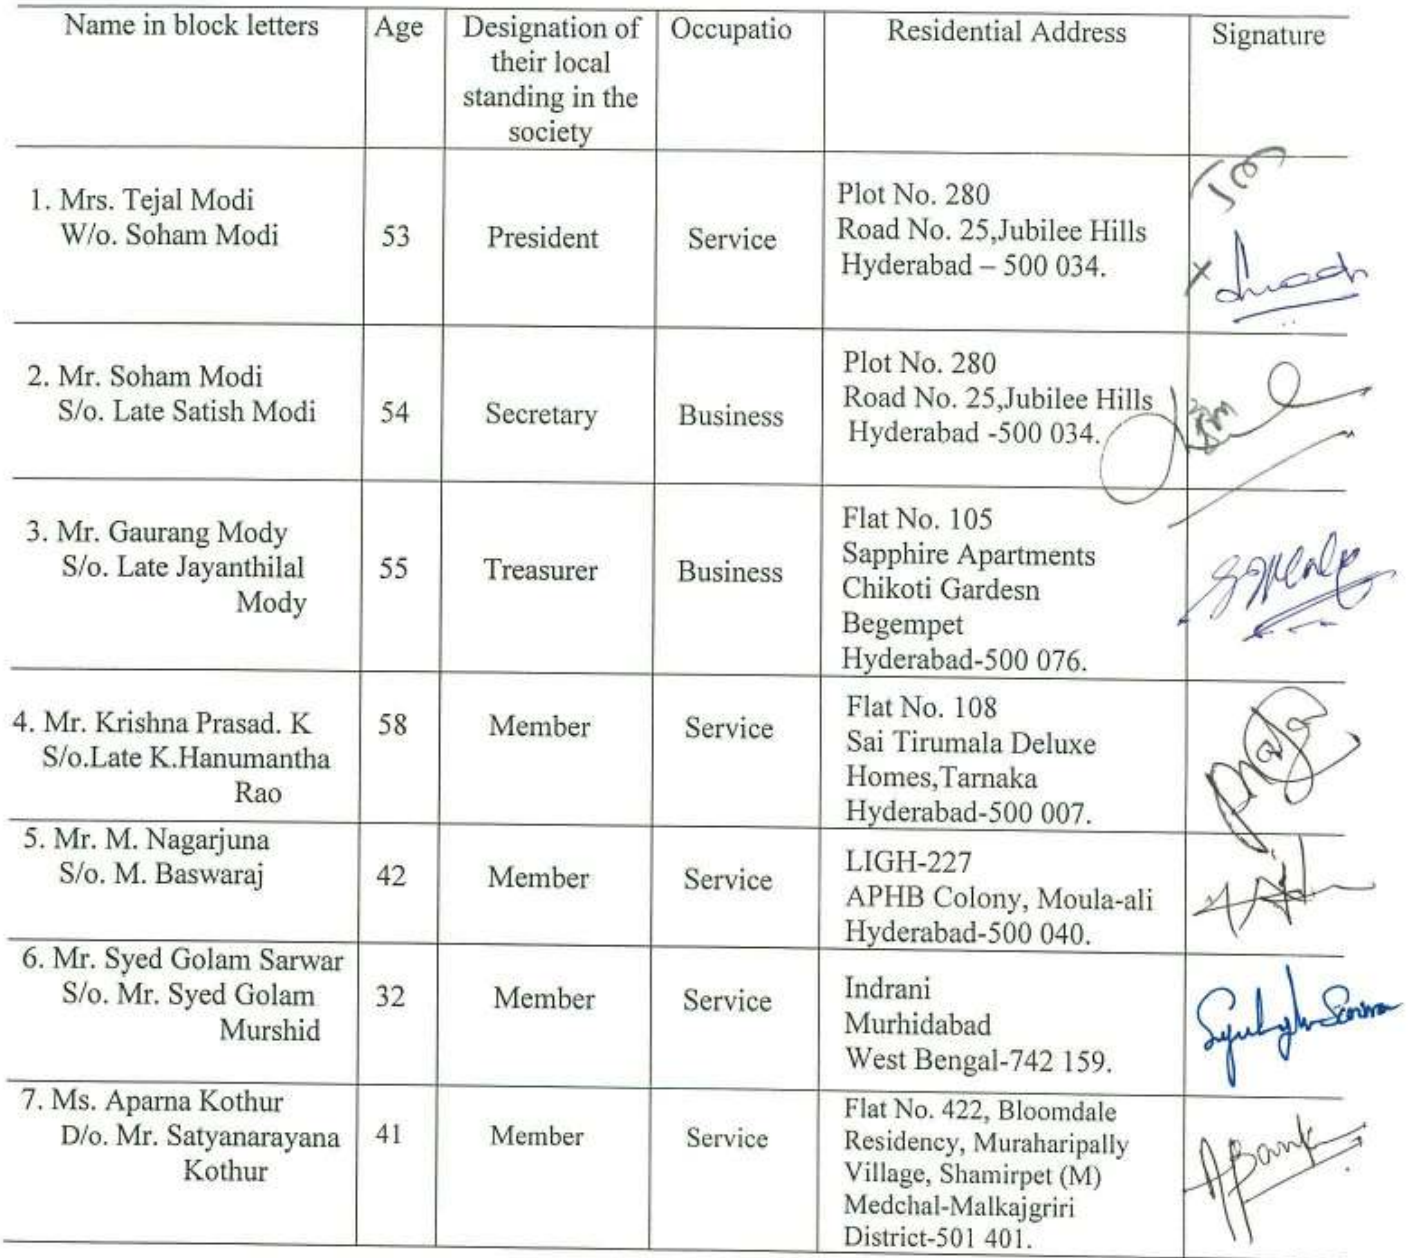 Name in block letters Age Designation of their local standing in the society Occupatio Residential Address Signature
1. Mrs. Tejal Modi
W/o. Soham Modi
53
President
Service
Plot No. 280
Road No. 25,Jubilee Hills
Hyderabad – 500 034.
2. Mr. Soham Modi
S/o. Late Satish Modi
54
Secretary
Business
Plot No. 280
Road No. 25,Jubilee Hills
Hyderabad -500 034.
3. Mr. Gaurang Mody
S/o. Late Jayanthilal
Mody
55
Treasurer
Business
Flat No. 105
Sapphire Apartments
Chikoti Gardesn
Begempet
Hyderabad-500 076.
4. Mr. Krishna Prasad. K
S/o.Late K.Hanumantha
Rao
58
Member
Service
Flat No. 108
Sai Tirumala Deluxe
Homes,Tarnaka
Hyderabad-500 007.
5. Mr. M. Nagarjuna
S/o. M. Baswaraj
42
Member
Service
LIGH-227
APHB Colony, Moula-ali
Hyderabad-500 040.
6. Mr. Syed Golam Sarwar
S/o. Mr. Syed Golam
Murshid
32
Member
Service
Indrani
Murhidabad
West Bengal-742 159.
7. Ms. Aparna Kothur
D/o. Mr. Satyanarayana
Kothur
41
Member
Service
Flat No. 422, Bloomdale
Residency, Muraharipally
Village, Shamirpet (M)
Medchal-Malkajgriri
District-501 401.